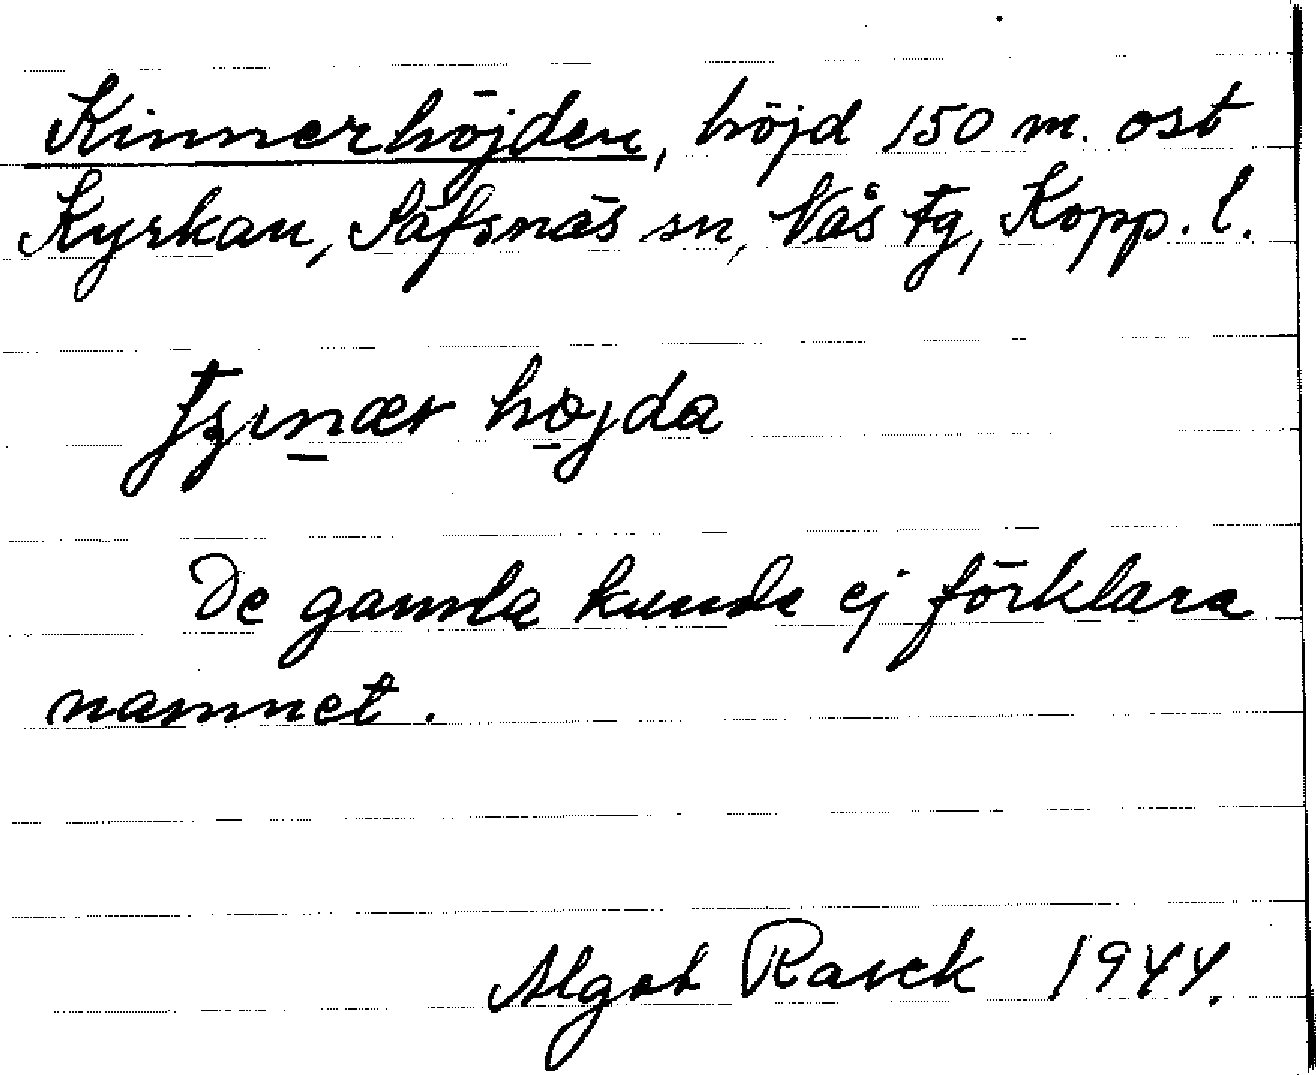 Kinnerhöjden, höjd 150 m. ost
Kyrkan, Säfsnäs sn, Nås tg, Kopp. l.
höjda
De gamla kunde ej förklara
namnet.
Algot 1944.